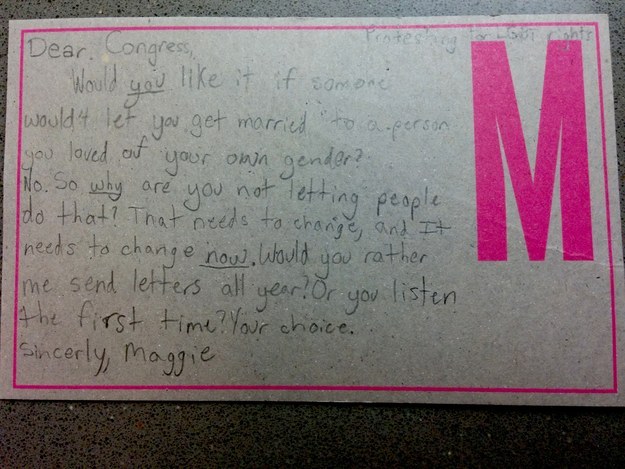 Protesting for LGBT rights
Dear, Congress,
Would you like it if someone
would't let you get married to a person
you loved of your own gender?
No. So why are you not letting people
do that? That needs to change, and It
needs to change now. Would you rather
me send letters all year? Or you listen
the first time? Your choice.
Sincerly, Maggie
M